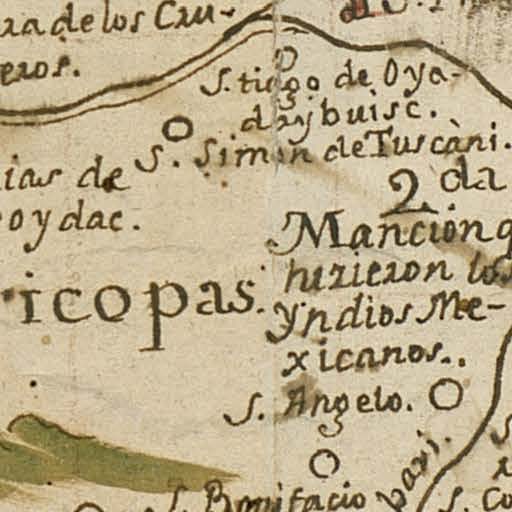 ra de los Cru-
eros.
S. tiago de Oya-
daybuisc.
S. Simon de Tuscàni.
ias de
oydac.
2. da
Manción q
hizieron los
Yndios Me-
xicanos.
icopas.
S. Angelo.
S. Bonifacio